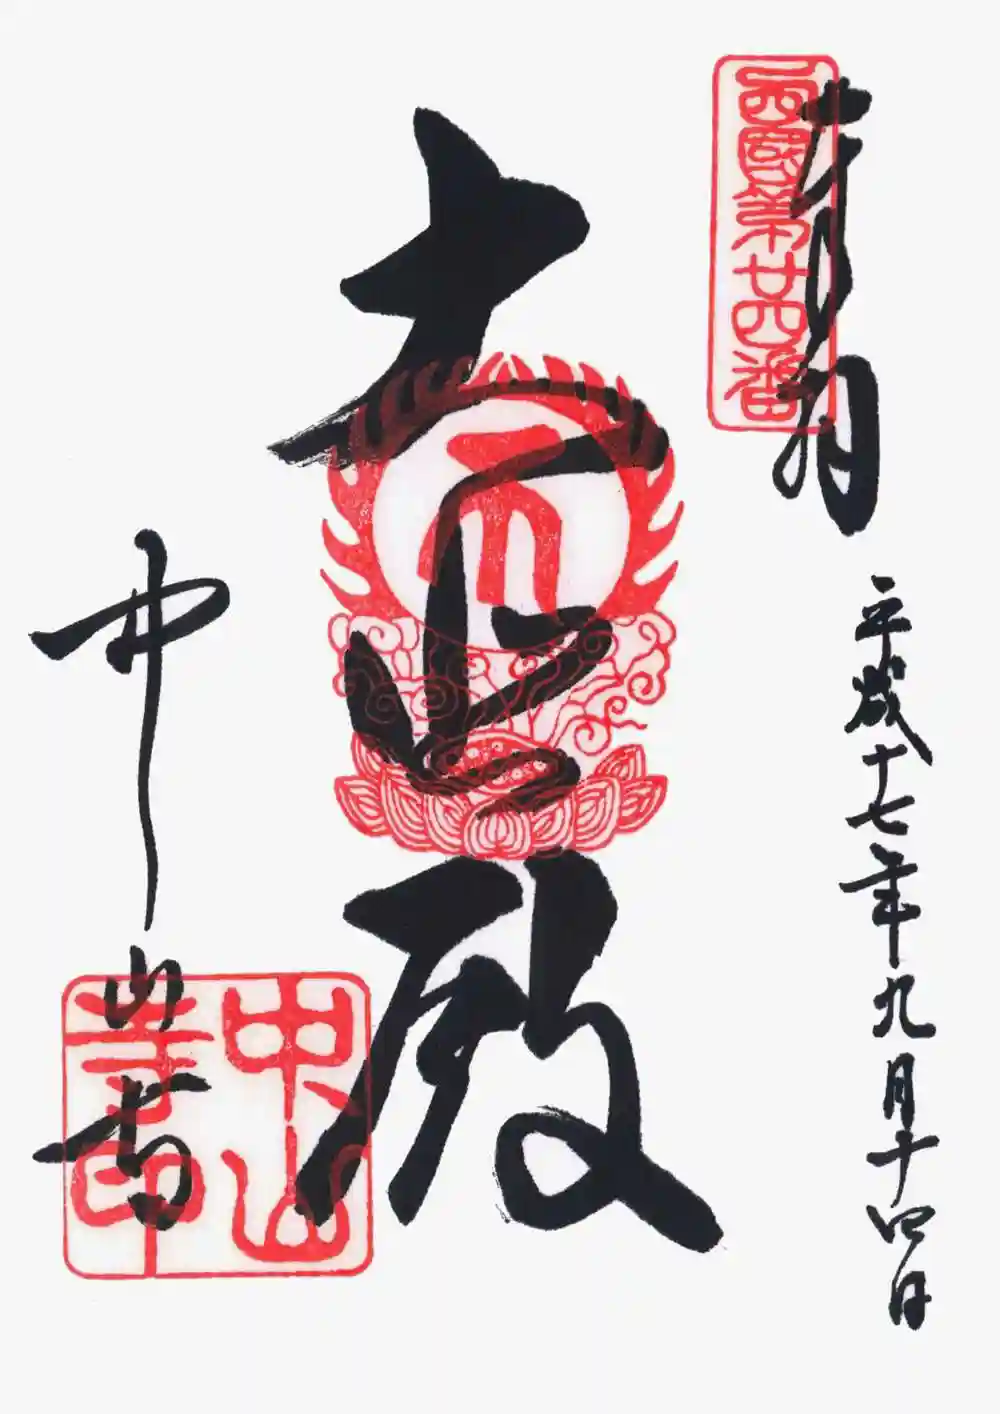 奉拝
西國第廿四番
平成十七年九月十四日
大悲殿
中山寺
中山
寺印